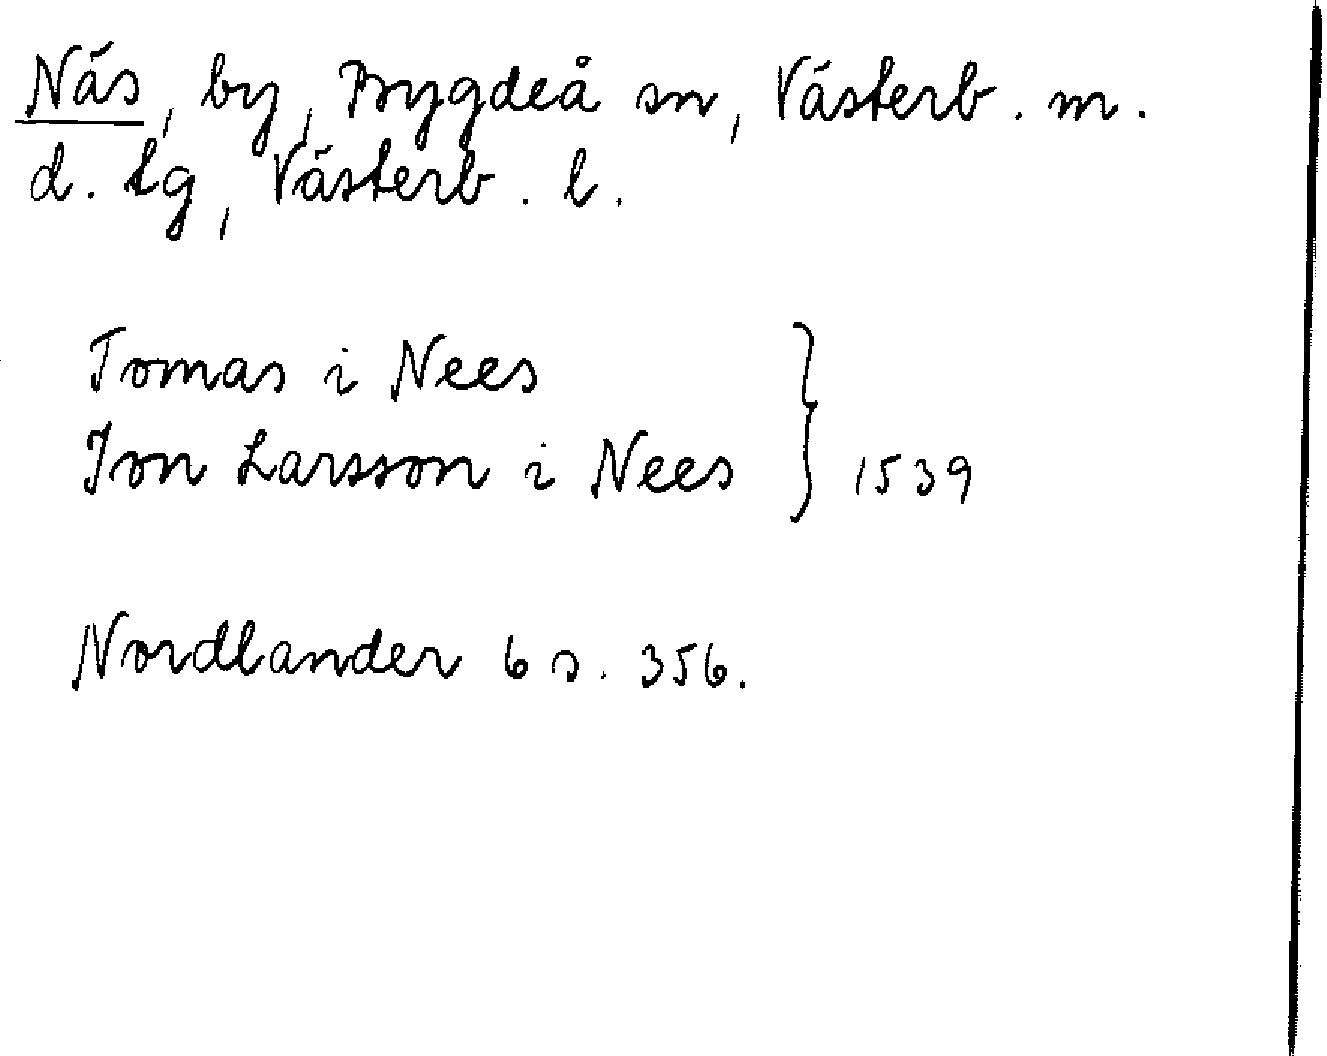 Näs, by, Bygdeå sn, Västerb. m.
d. tg, Västerb. l.
Tomas i Nees
Jon Larsson i Nees } 1539
Nordlander 6 s. 356.